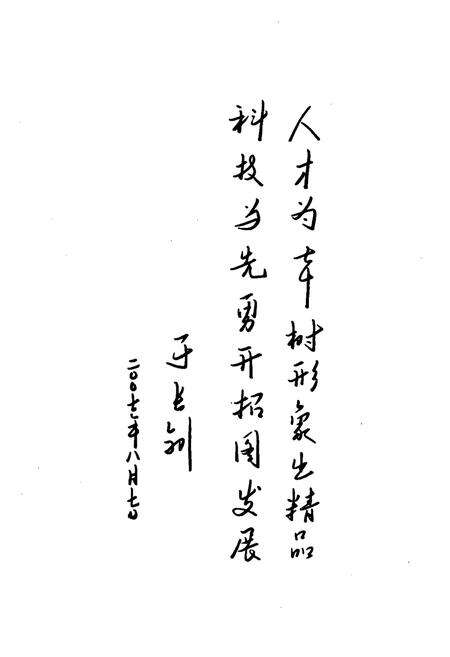 人才为本树形象出精品
科技为先勇开拓图发展
于长剑
二〇〇七年八月七日